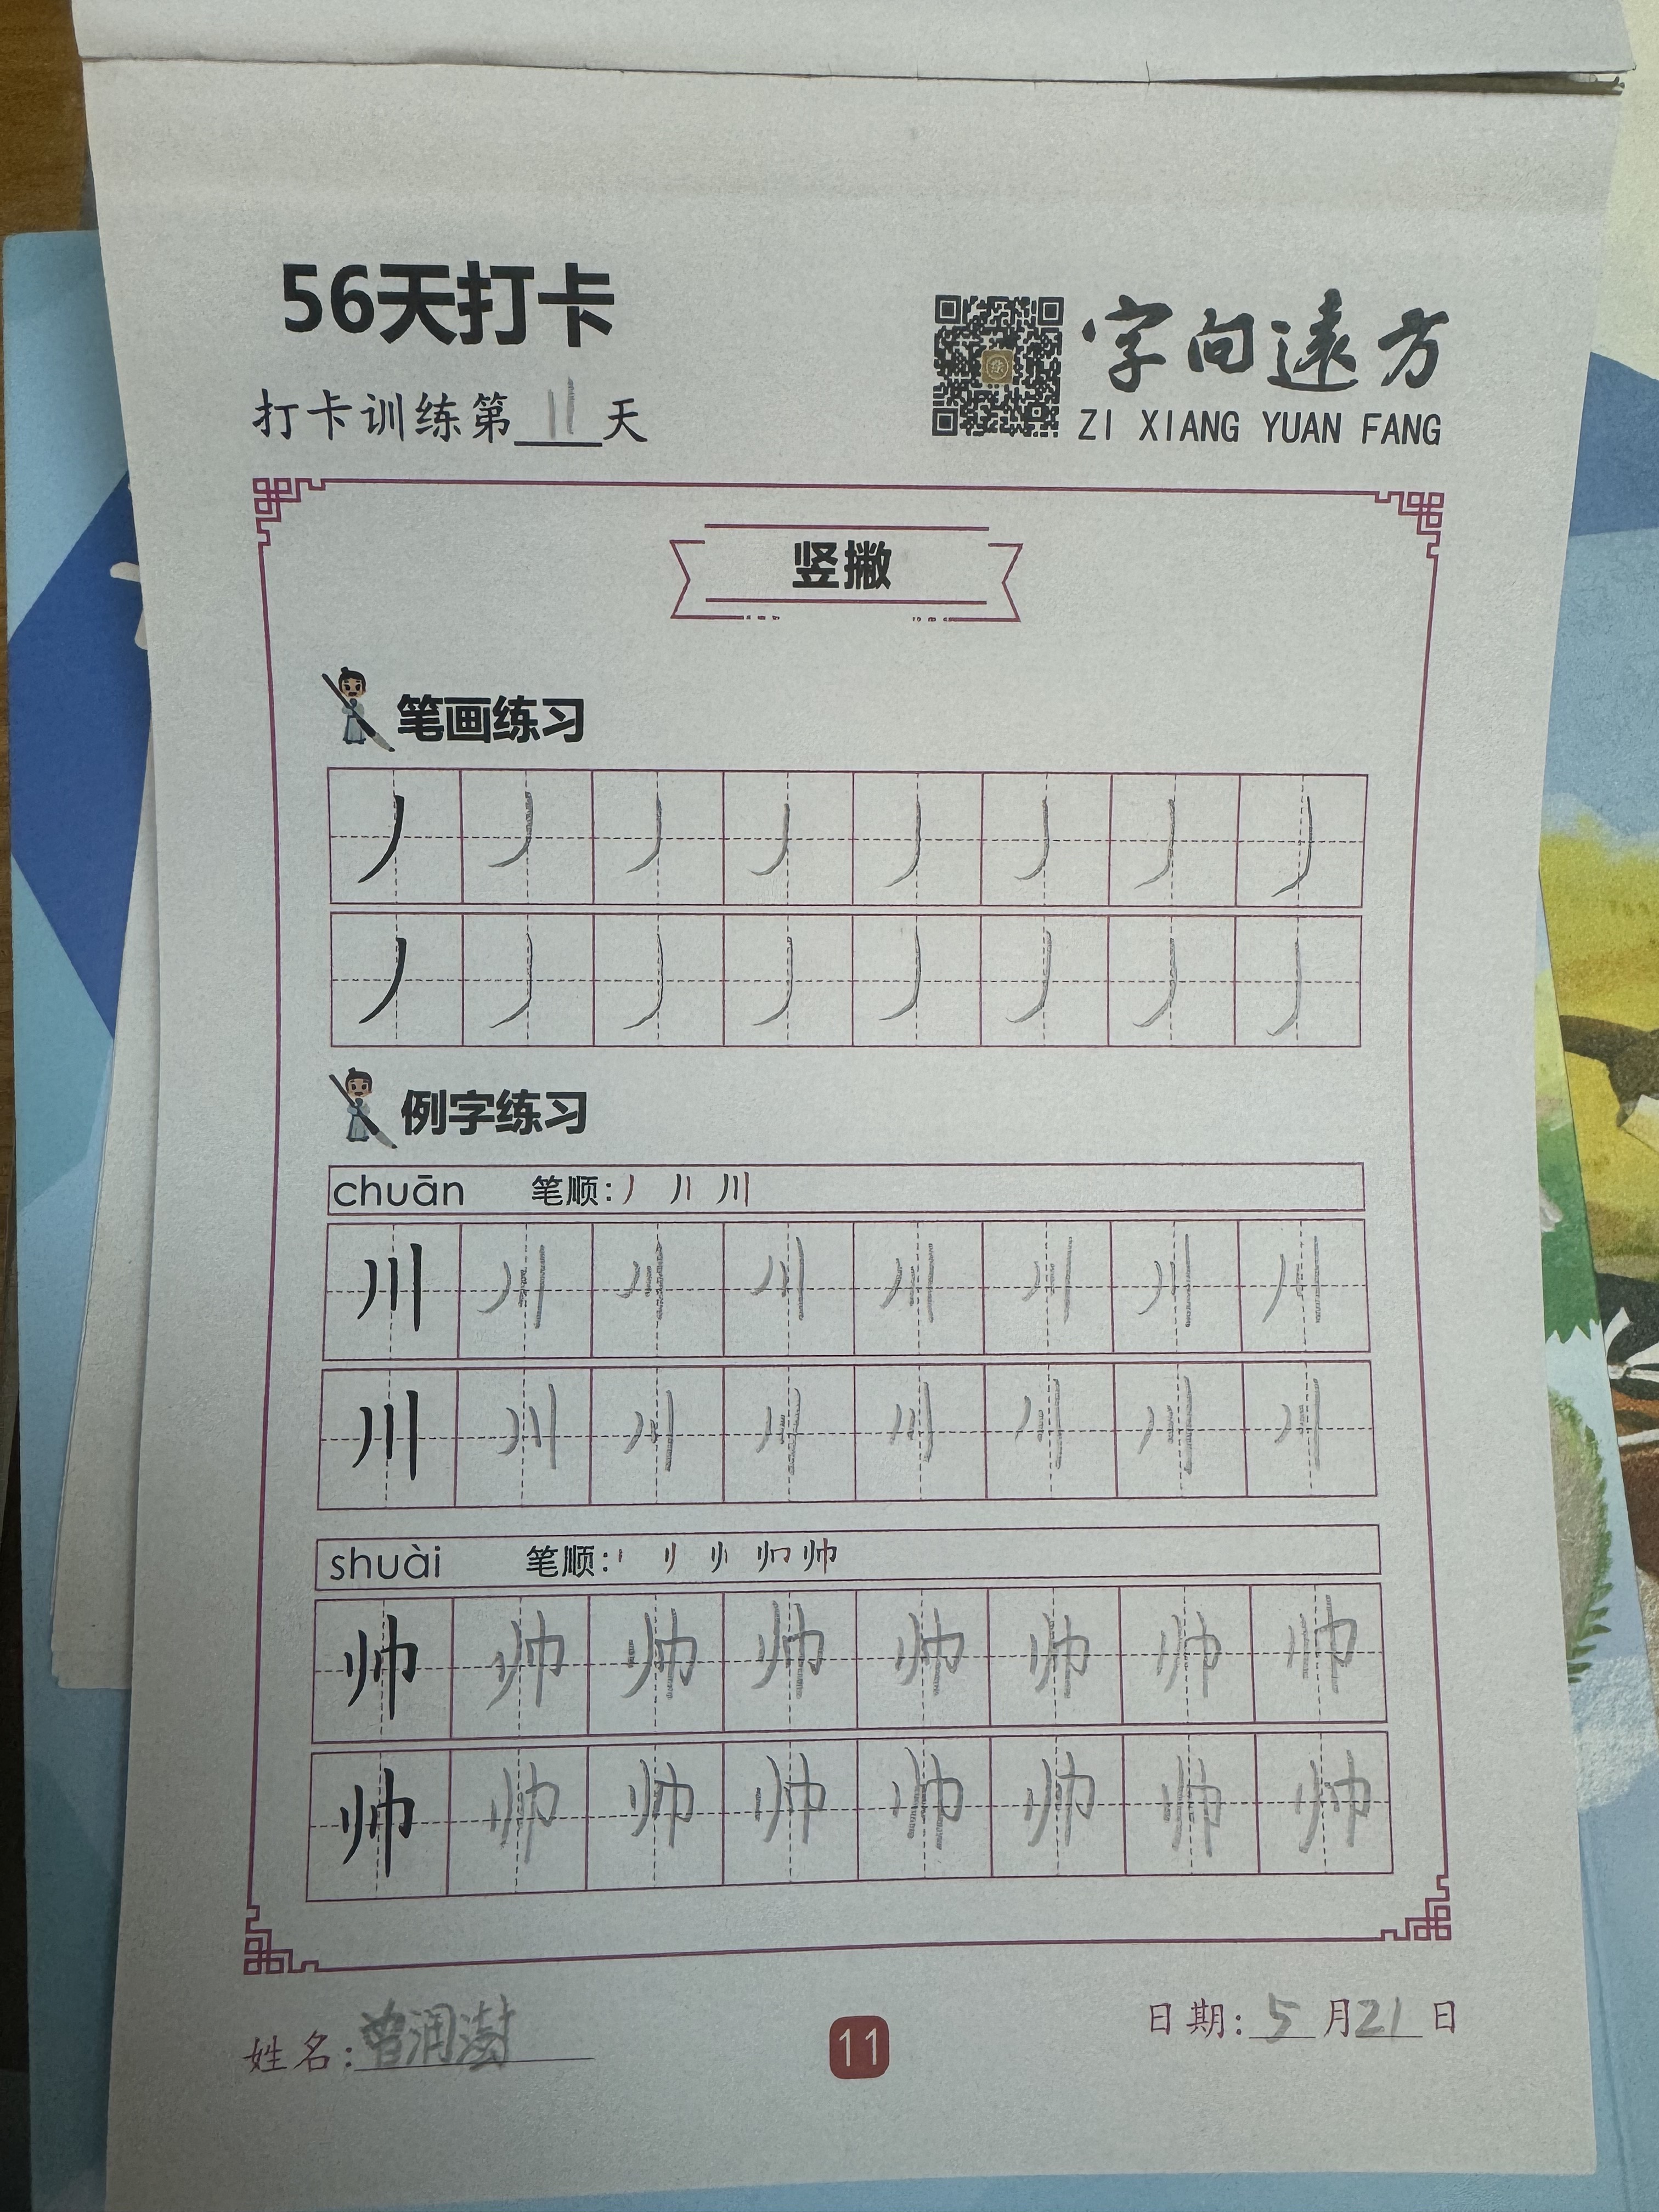 56天打卡
打卡训练第11天
字向遠方
ZI XIANG YUAN FANG
竖撇
笔画练习
丿丿丿丿丿丿丿丿
丿丿丿丿丿丿丿丿
例字练习
chuān 笔顺:丿 丿丨 川
川川川川川川川川
川川川川川川川川
shuài 笔顺:丨 刂 帅
帅帅帅帅帅帅帅帅
帅帅帅帅帅帅帅帅
姓名:曾润澍
11
日期:5月21日